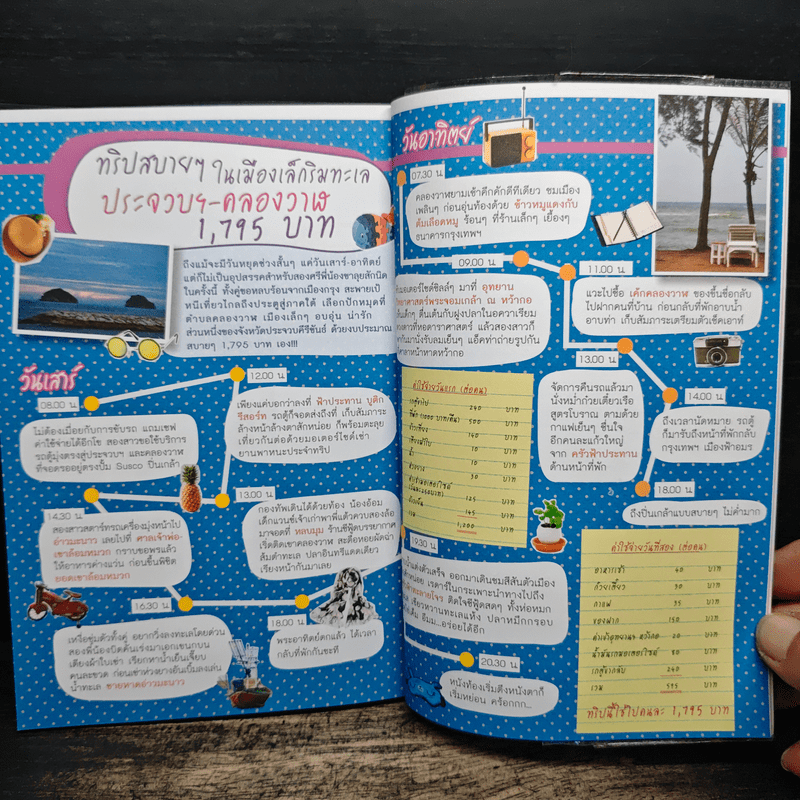 ทริปสบายๆ ในเมืองเล็กริมทะเล
ประจวบฯ-คลองวาฬ
1,795 บาท
ถึงแม้จะมีวันหยุดช่วงสั้นๆ แค่วันเสาร์-อาทิตย์
แต่ก็ไม่เป็นอุปสรรคสำหรับสองศรีพี่น้องขาลุยสักนิด
ในครั้งนี้ ทั้งคู่ขอหลบร้อนจากเมืองกรุง สะพายเป้
หนีเที่ยวไกลถึงประตูสู่ภาคใต้ เลือกปักหมุดที่
ตำบลคลองวาฬ เมืองเล็กๆ อบอุ่น น่ารัก
ส่วนหนึ่งของจังหวัดประจวบคีรีขันธ์ ด้วยงบประมาณ
สบายๆ 1,795 บาท เอง!!!
วันเสาร์
08.00 น.
ไม่ต้องเมื่อยกับการขับรถ แถมเซฟ
ค่าใช้จ่ายได้อีกโข สองสาวขอใช้บริการ
รถตู้มุ่งตรงสู่ประจวบฯ และคลองวาฬ
ที่จอดรออยู่ตรงปั้ม Susco ปิ่นเกล้า
12.00 น.
เพียงแค่บอกว่าลงที่ ฟ้าประทาน บูติก
รีสอร์ท รถตู้ก็จอดส่งถึงที่ เก็บสัมภาระ
ล้างหน้าล้างตาสักหน่อย ก็พร้อมตะลุย
เที่ยวกันต่อด้วยมอเตอร์ไซค์เช่า
ยานพาหนะประจำทริป
13.00 น.
กองทัพเดินได้ด้วยท้อง น้องอ้อม
เด็กแวนซ์เจ้าเก่าพาพี่แต้วควบสองล้อ
มาจอดที่ หลบมุม ร้านซีฟู้ดบรรยากาศ
เริ่ดติดเขาคลองวาฬ สะตือหอยผัดฉ่า
ส้มตำทะเล ปลาอินทรีแดดเดียว
เรียงหน้ากันมาเลย
14.30 น.
สองสาวสตาร์ทรถเครื่องมุ่งหน้าไป
อ่าวมะนาว เลยไปที่ ศาลเจ้าพ่อ-
เขาล้อมหมวก กราบขอพรแล้ว
ให้อาหารค่างแว่น ก่อนขึ้นพิชิต
ยอดเขาล้อมหมวก
16.30 น.
เหงื่อชุ่มตัวทั้งคู่ อยากวิ่งลงทะเลโดยด่วน
สองพี่น้องบิดคันเร่งมาเอกเขนกบน
เตียงผ้าใบเช่า เรียกหาน้ำเย็นเจี๊ยบ
คนละขวด ก่อนเช่าห่วงยางอันเบิ้มลงเล่น
น้ำทะเล ชายหาดอ่าวมะนาว
18.00 น.
พระอาทิตย์ตกแล้ว ได้เวลา
กลับที่พักกันซะที
วันอาทิตย์
07.30 น.
คลองวาฬยามเช้าคึกคักดีทีเดียว ชมเมือง
เพลินๆ ก่อนอุ่นท้องด้วย ข้าวหมูแดงกับ
ต้มเลือดหมู ร้อนๆ ที่ร้านเล็กๆ เยื้องๆ
ธนาคารกรุงเทพฯ
09.00 น.
มอเตอร์ไซค์ชิลล์ๆ มาที่ อุทยาน
วิทยาศาสตร์พระจอมเกล้า ณ หว้ากอ
เป็นเด็กๆ ตื่นเต้นกับฝูงปลาในอควาเรียม
ดวงดาวที่หอดาราศาสตร์ แล้วสองสาวก็
พากันมานั่งรับลมเย็นๆ แอ๊คท่าถ่ายรูปกัน
ศาลาหน้าหาดหว้ากอ
11.00 น.
แวะไปซื้อ เค้กคลองวาฬ ของขึ้นชื่อกลับ
ไปฝากคนที่บ้าน ก่อนกลับที่พักอาบน้ำ
อาบท่า เก็บสัมภาระเตรียมตัวเช็คเอาท์
13.00 น.
จัดการคืนรถแล้วมา
นั่งหม่ำก๋วยเตี๋ยวเรือ
สูตรโบราณ ตามด้วย
กาแฟเย็นๆ ชื่นใจ
อีกคนละแก้วใหญ่
จาก ครัวฟ้าประทาน
ด้านหน้าที่พัก
14.00 น.
ถึงเวลานัดหมาย รถตู้
ก็มารับถึงหน้าที่พักกลับ
กรุงเทพฯ เมืองฟ้าอมร
18.00 น.
ถึงปิ่นเกล้าแบบสบายๆ ไม่ค่ำมาก
ค่าใช้จ่ายวันแรก (ต่อคน)
240 บาท
500 บาท
140 บาท
10 บาท
บาท
บาท
125 บาท
145 บาท
รวม 1,200 บาท
19.30 น.
แต่งตัวเสร็จ ออกมาเดินชมสีสันตัวเมือง
ติดใจซีฟู้ดสดๆ ทั้งห่อหมก
เขียวหวานทะเลแห้ง ปลาหมึกกรอบ
อืมม...อร่อยได้อีก
20.30 น.
หนังท้องเริ่มตึงหนังตาก็
เริ่มหย่อน คร้อกกก...
ค่าใช้จ่ายวันที่สอง (ต่อคน)
อาหารเช้า 40 บาท
ก๋วยเตี๋ยว 30 บาท
กาแฟ 35 บาท
ของฝาก 150 บาท
ค่าเข้าอุทยานฯ หว้ากอ 20 บาท
น้ำมันมอเตอร์ไซค์ 80 บาท
รถตู้ขากลับ 240 บาท
รวม 595 บาท
ทริปนี้ใช้ไปคนละ 1,795 บาท